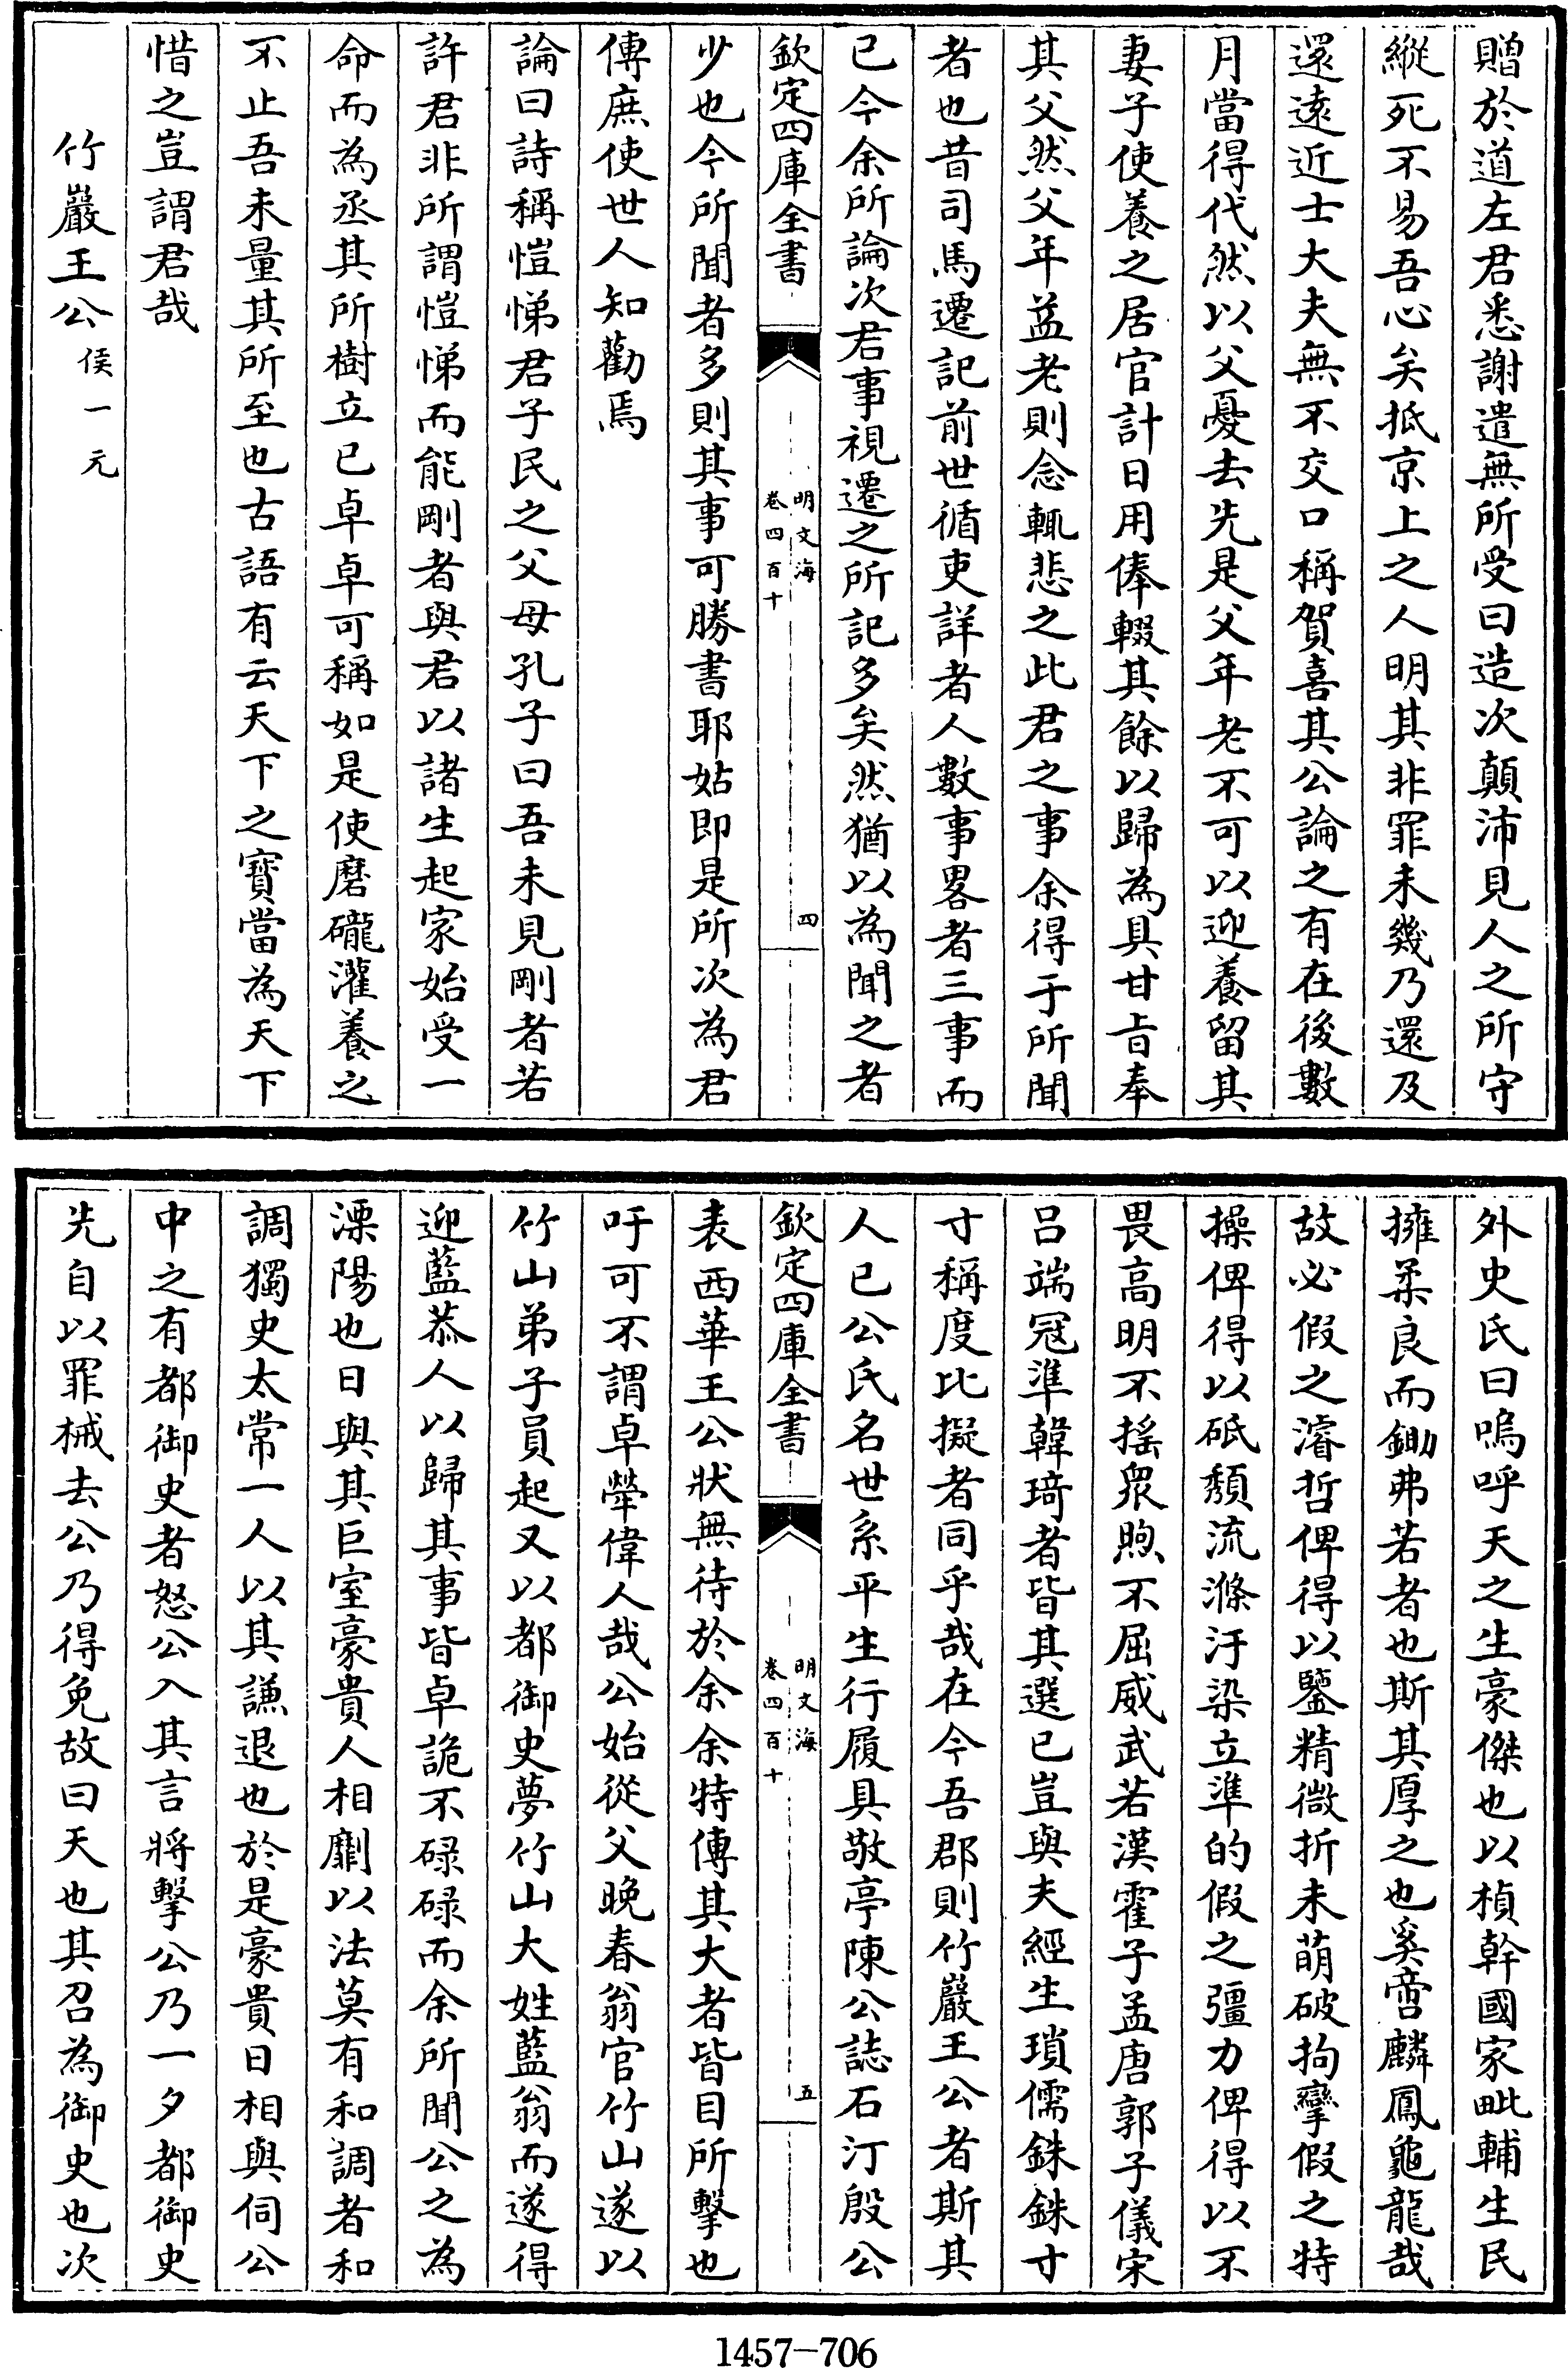 贈於道左君悉謝遣無所受曰造次顛沛見人之所守
縱死不易吾心矣抵京上之人明其非罪未幾乃還及
還遠近士大夫無不交口稱賀喜其公論之有在後數
月當得代然以父憂去先是父年老不可以迎養留其
妻子使養之居官計日用俸輟其餘以歸為具甘旨奉
其父然父年益老則念輒悲之此君之事余得于所聞
者也昔司馬遷記前世循吏詳者人數事畧者三事而
已今余所論次君事視遷之所記多矣然猶以為聞之者
欽定四庫全書
明文海
卷四百十
四
少也今所聞者多則其事可勝書耶姑即是所次為君
傳庶使世人知勸焉
論曰詩稱愷悌君子民之父母孔子曰吾未見剛者若
許君非所謂愷悌而能剛者與君以諸生起家始受一
命而為丞其所樹立已卓卓可稱如是使磨礲灌養之
不止吾未量其所至也古語有云天下之寶當為天下
惜之豈謂君哉
竹巖王公侯一元
外史氏曰嗚呼天之生豪傑也以楨幹國家毗輔生民
擁柔良而鋤弗若者也斯其厚之也奚啻麟鳳龜龍哉
故必假之濬哲俾得以鑒精微折未萌破拘攣假之特
操俾得以砥頹流滌汙染立準的假之彊力俾得以不
畏高明不搖衆煦不屈威武若漢霍子孟唐郭子儀宋
吕端冦準韓琦者皆其選已豈與夫經生瑣儒銖銖寸
寸稱度比擬者同乎哉在今吾郡則竹巖王公者斯其
人已公氏名世系平生行履具敬亭陳公誌石汀殷公
欽定四庫全書
明文海
卷四百十
五
表西華王公狀無待於余余特傳其大者皆目所擊也
吁可不謂卓犖偉人哉公始從父晚春翁官竹山遂以
竹山弟子員起又以都御史夢竹山大姓藍翁而遂得
迎藍恭人以歸其事皆卓詭不碌碌而余所聞公之為
溧陽也日與其巨室豪貴人相劘以法莫有和調者和
調獨史太常一人以其謙退也於是豪貴日相與伺公
中之有都御史者怒公入其言將擊公乃一夕都御史
先自以罪械去公乃得免故曰天也其召為御史也次
1457-706